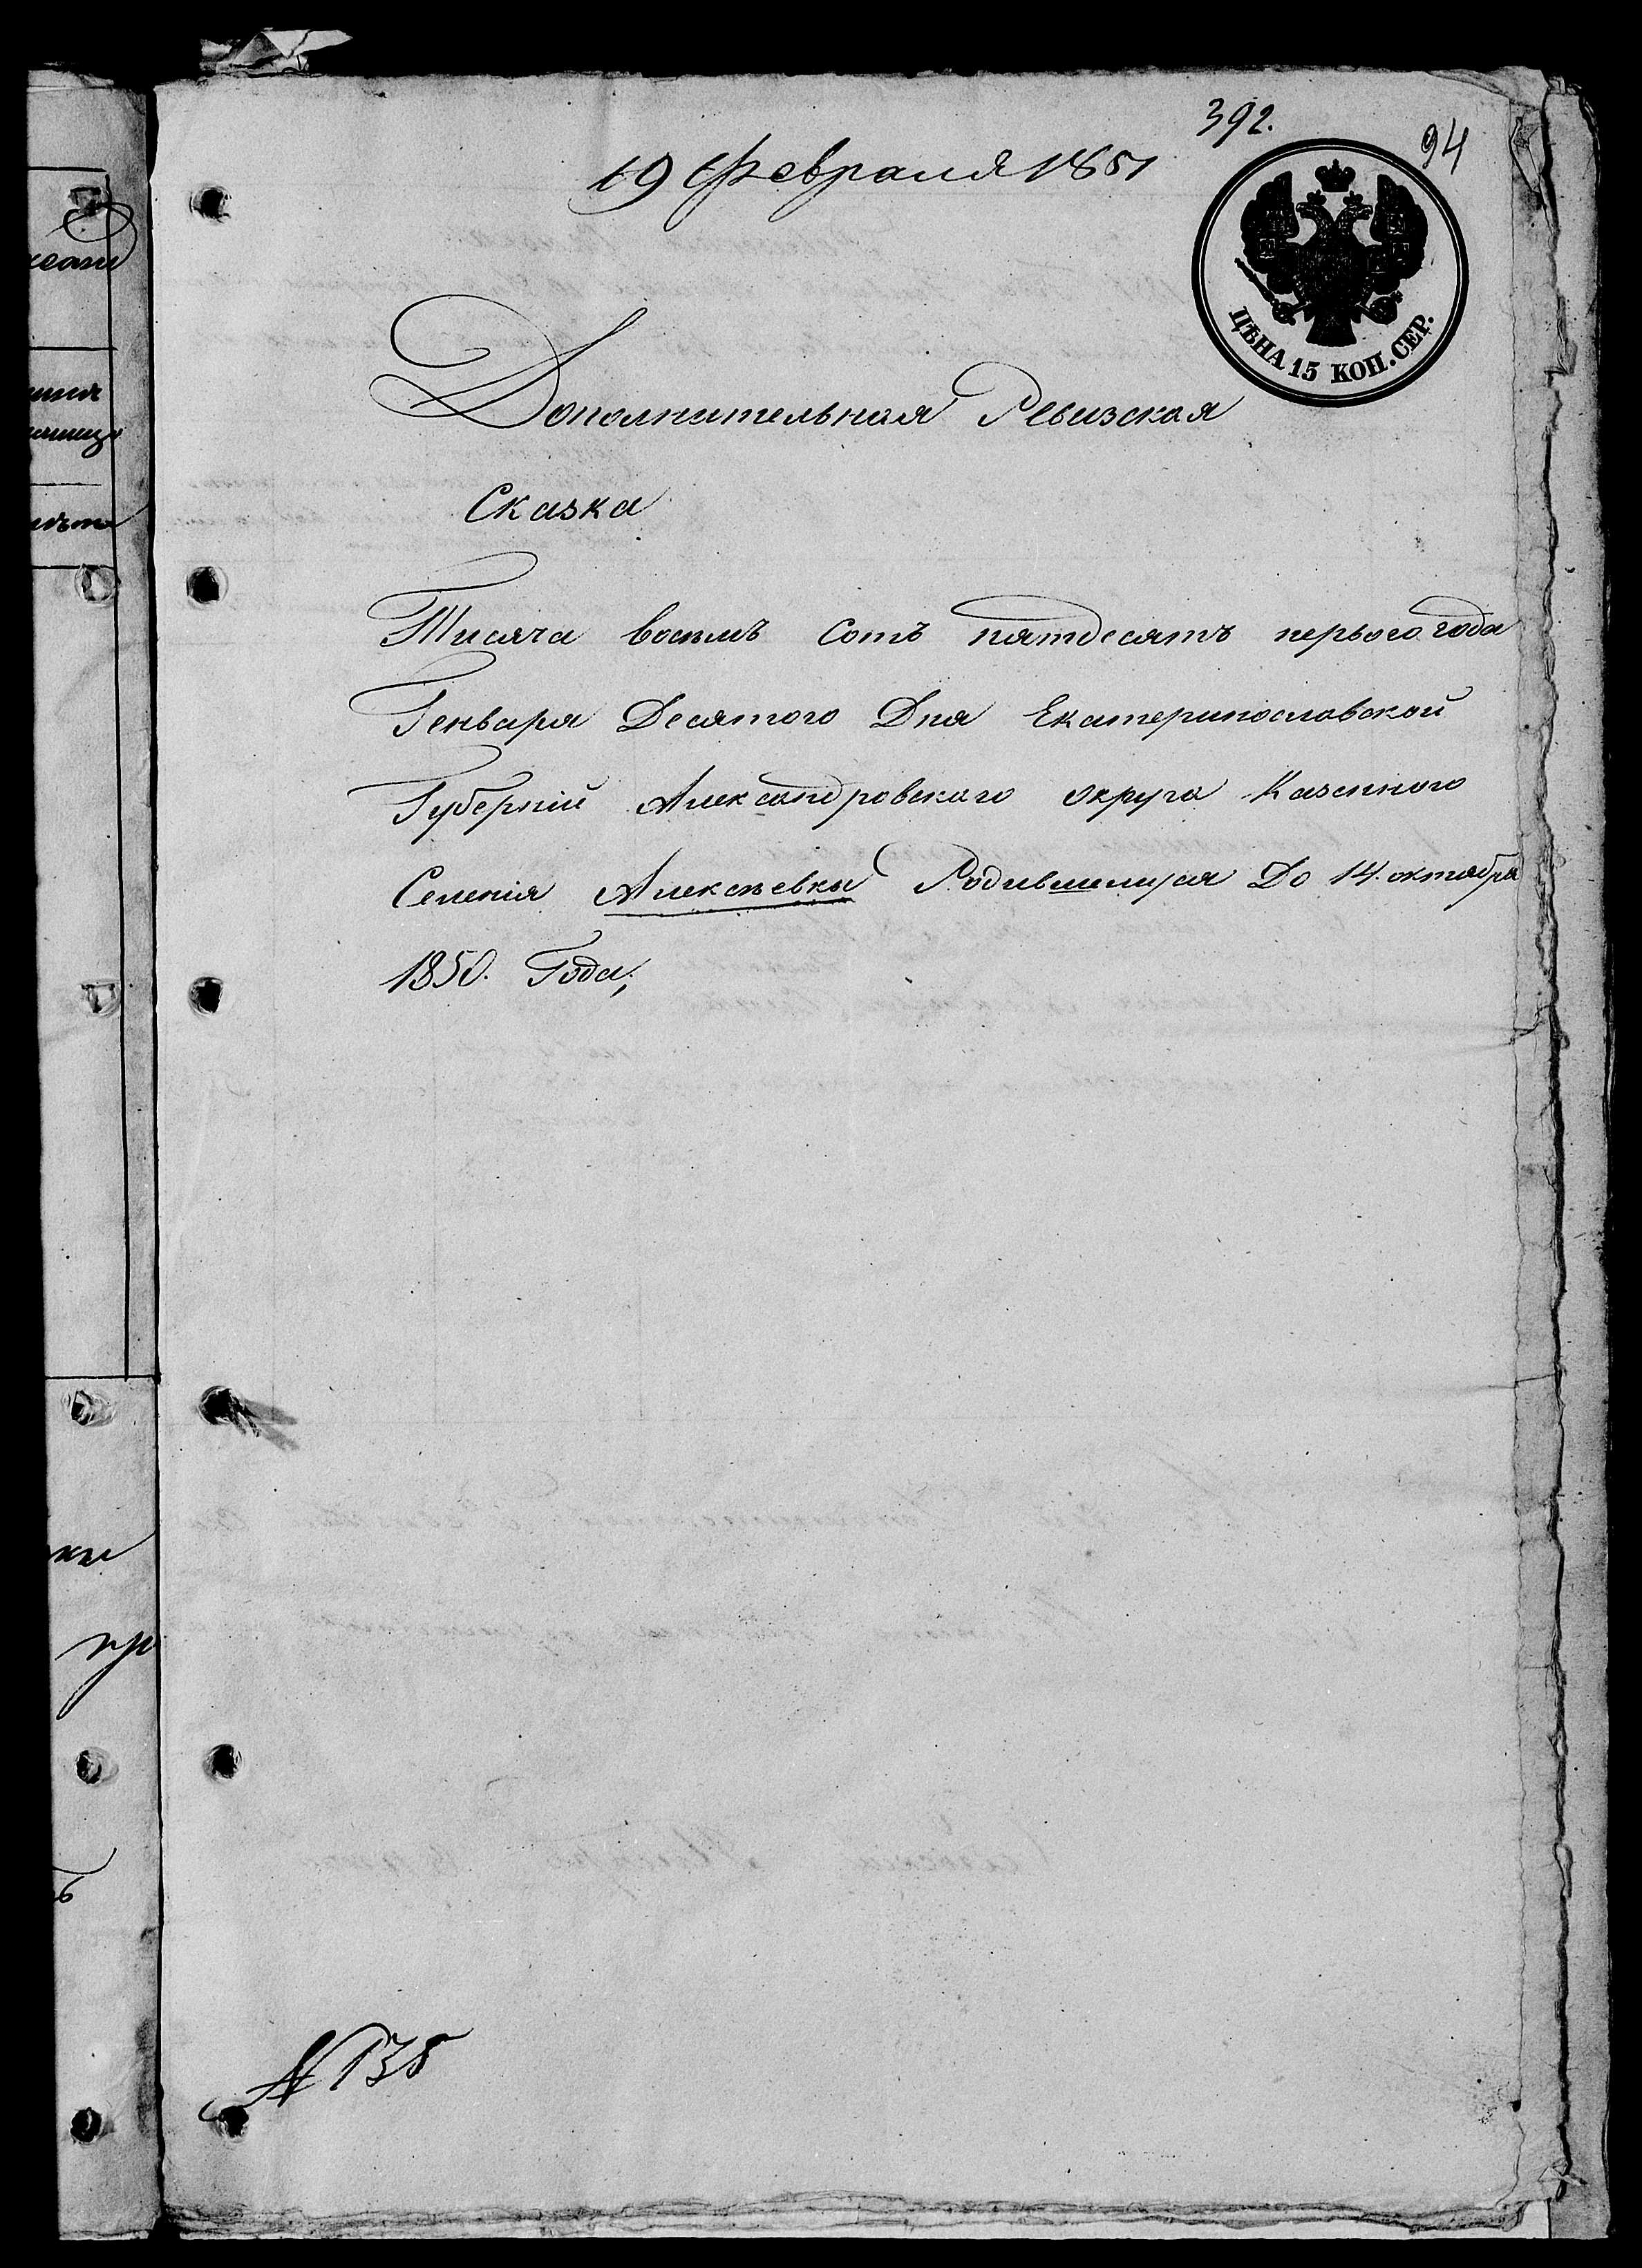 392.
94
19 Февраля 1851
ЦѢНА 15 КОП. СЕР.
Дополнительная Ревизская
Сказка
Тисяча восемъ сотъ пятдесятъ первого года
Генваря Десятого Дня Екатеринославской
Губерніи Александровского округа Казенного
Селенія Алексѣевки Родившемуся До 14. октября
1850. Года;
№ 135